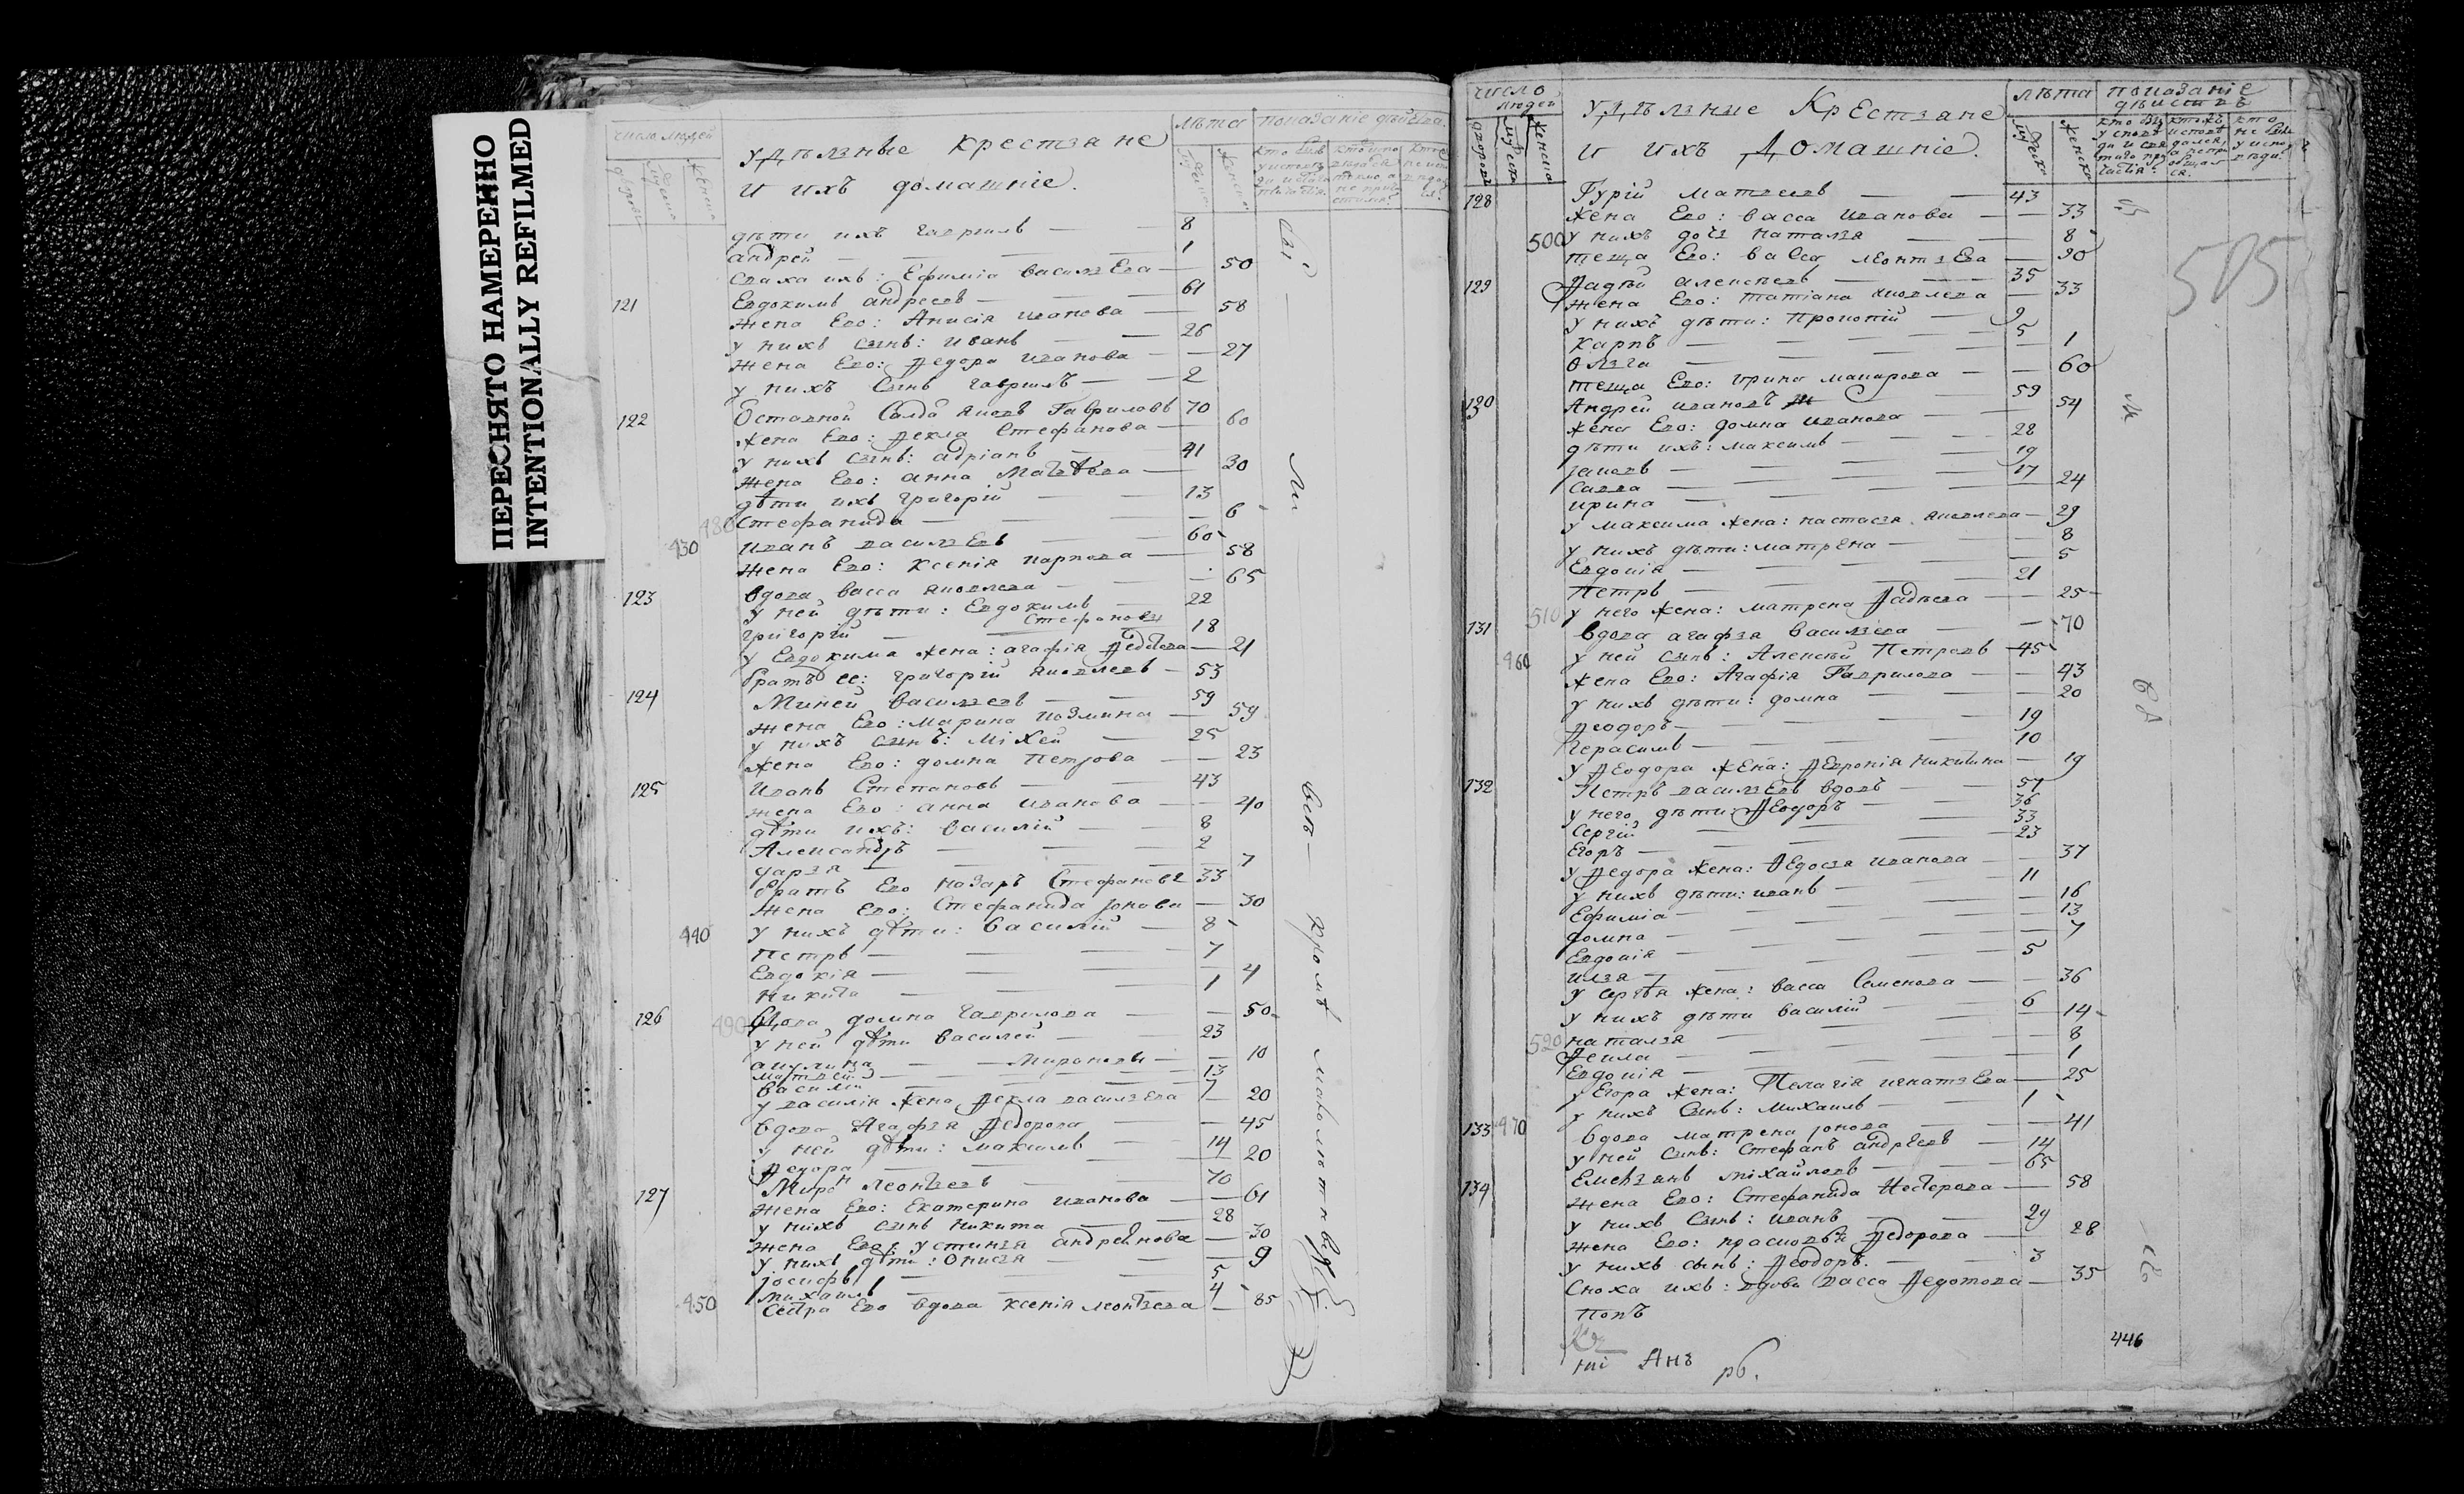 ПЕРЕСНЯТО НАМЕРЕННО
INTENTIONALLY REFILMED
число людей
мѣта показаніе
удѣлзные крестзане
и ихъ домашніе.
дѣти ихъ гавриилъ — 8
андрей — 1
снаха ихъ: Ефимiа василзЕва — 50
121 Евдокимъ андреевъ — 61
жена Его: Анисiя иванова — 58
у нихъ сынъ: иванъ — 26
жена Его: Ѳедора иванова — 27
у нихъ Сынъ гавриилъ — 2
122 Отставной Салда яковъ Гавриловъ 70
жена Его: Ѳекла Стефанова — 60
у нихъ сынъ: адрiанъ — 41
жена Его: анна Матвѣева — 30
дѣти ихъ григорiй — 13
480 Стефанида — 6
430 иванъ василзЕвъ — 60
жена Его: Ксенiя карпова — 58
123 вдова васса яковлева — 65
у ней дѣти: Евдокимъ — 22
григорiй — Стефановы 18
у Евдокима жена: агафiя — 21
братъ ее: григорiй яковлевъ — 53
124 Миней василзевъ — 59
жена Его: марина козмина — 59
у нихъ сынъ: мiхей — 25
жена Его: домна Петрова — 23
125 Иванъ Степановъ — 43
жена Его: анна иванова — 40
дѣти ихъ: василiй — 8
Александръ — 2
дарзя — 7
братъ Его назаръ Стефановъ 33
жена Его: Стефанида iонова — 30
440 у нихъ дѣти: василiй — 8
Петръ — 7
Евдокiя — 4
никита — 1
126 490 вдова домна гаврилова — 50
у ней дѣти василей — 23
акулина — Мироновы — 10
матвей — 13
василiй — 7
у василiя жена Ѳекла василзева — 20
вдова Агафзя Ѳедорова — 45
у ней дѣти: максимъ — 14
Ѳедора — 20
127 Миронъ леонтзевъ — 70
жена Его: Екатерина иванова — 61
у нихъ сынъ никита — 28
жена Его: устинзя андреянова — 30
у нихъ дѣти: Онисзя — 9
iосифъ — 5
михаилъ — 4
450 Сестра Его вдова ксенiя леонтзева — 85
всѣ
кромѣ малолѣтнъ
число людей
дворовъ
мужеска
женска
удѣлзные КрЕстзане
и ихъ Домашнiе.
лѣта показанiе
дѣйствъ
128 Гурiй матвеевъ — 43
жена Его: васса иванова — 33
500 у нихъ дочз наталзя — 8
теща Его: васса леонтзЕва — 90
129 Ѳадѣй алексѣевъ — 35
жена Его: татiана яковлева — 33
у нихъ дѣти: Прокопiй — 9
карпъ — 5
Олзга — 1
теща Его: ирина макарова — 60
130 Андрей ивановъ — 59
жена Его: домна иванова — 54
дѣти ихъ: максимъ — 28
iаковъ — 19
Савва — 17
ирина — 24
у максима жена: настасзя яковлева — 29
у нихъ дѣти: матрена — 8
Евдокiя — 5
Петръ — 21
510 у него жена: матрена Ѳадѣева — 25
131 вдова агафзя василзева — 70
460 у ней сынъ: Алексѣй Петровъ 45
жена Его: Агафiя Гаврилова — 43
у нихъ дѣти: домна — 20
Ѳеодоръ — 19
герасимъ — 10
у Ѳеодора жЕна: Ѳевронiя никитина — 19
132 Петръ василзевъ вдовъ — 57
у него дѣти: Ѳеодоръ — 36
Сергiй — 33
Егоръ — 23
у Ѳедора жена: Ѳедосзя иванова — 37
у нихъ дѣти: иванъ — 11
Ефимiа — 16
домна — 13
Евдокiя — 7
илзя — 5
у сергѣя жена: васса Семенова — 36
у нихъ дѣти василiй — 6
520 наталзя — 14
Ѳекла — 8
Евдокiя — 1
у Егора жена: Пелагiя игнатзЕва — 25
у нихъ Сынъ: михаилъ — 1
133 470 вдова матрена iонова — 41
у ней сынъ: Стефанъ андрѣевъ — 14
134 Емелзянъ мiхайловъ — 65
жена Его: Стефанида Нестерова — 58
у нихъ Сынъ: иванъ — 29
жена Его: прасковзя Ѳедорова — 28
у нихъ сынъ: Ѳеодоръ. — 3
Сноха ихъ: вдова васса Ѳедотова — 35
попъ
нiй Анъ
446
505